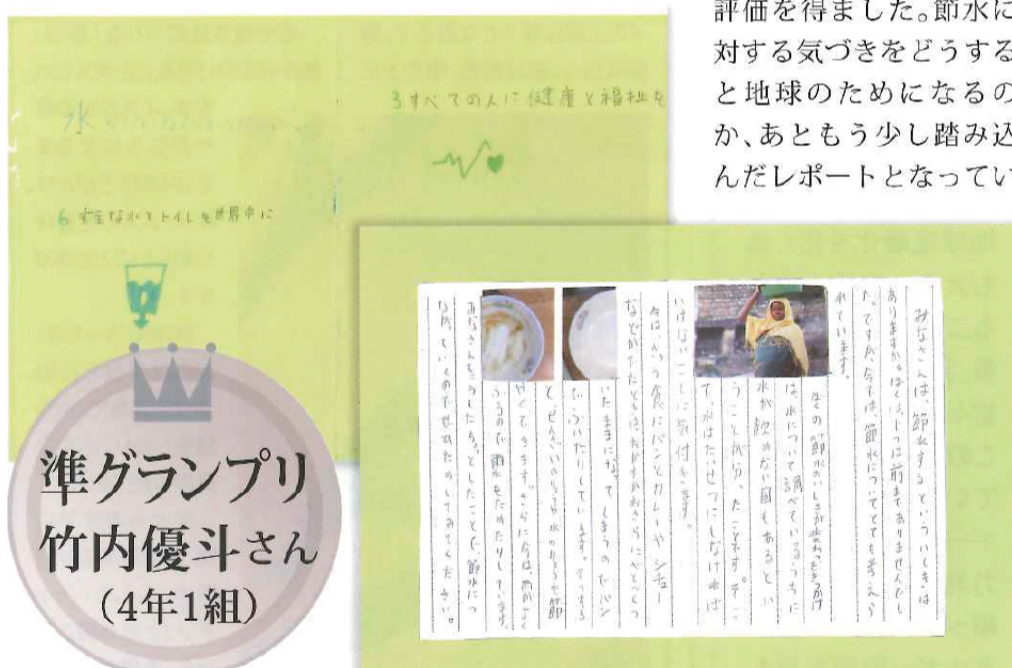 評価を得ました。節水に
対する気づきをどうする
と地球のためになるの
か、あともう少し踏み込
んだレポートとなってい
3 すべての人に健康と福祉を
水
6 安全な水とトイレを世界中に
準グランプリ
竹内優斗さん
(4年1組)
みなさんは、節水するといういしきは
ありますか。ぼくは、じつは前までありませんでし
た。ですが、今では、節水についてとても考えら
れています。
ぼくの節水のいしきが変わったきっかけ
は、水について調べているうちに
水が飲めない国もあるとい
うことが分かったことです。そこ
で、水はたいせつにしなければ
いけないことに気付きます。
今は、夕食にパンとカレーやシチュー
などがでたときは、おかずがおさらにべとべとつ
いたままになってしまうのでパン
でふいたりしています。そうする
と、せんざいのりょうや水のりょうも節
やくできます。さらに今は、雨がよく
ふるので、雨水をためたりしています。
みなさんもこのちょっとしたことで、節水につ
ながっていくのでぜひためしてみてください。